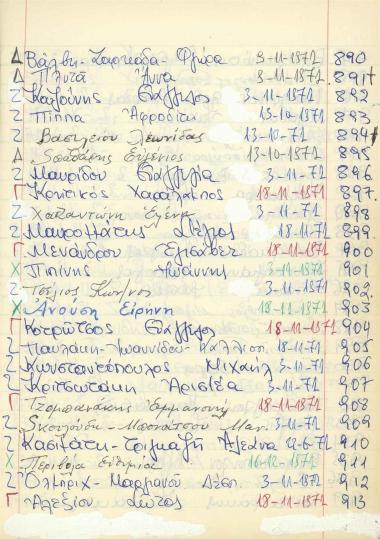 Δ Βάλβη-Ζαρκάδα-Φλώρα 3-11-1871 890
Δ Πιλντά Άννα 3-11-1871 891†
Ζ Καζούνης Βαγγέλης 3-11-1871 892
Ζ Πίππα Αφροδίτη 13-10-1871 893
Ζ Βασιλείου Λεωνίδας 13-10-71 894†
Δ Ευγένιος 13-10-1871 895
Ζ Μαυρίδου Βαγγελία 3-11-71 896
Γ Κρητικός Χαράλαμπος 18-11-1871 897
Ζ Χατζαντώνη Ελένη 3-11-71 898
Ζ Μαυρομμάτης Στέλιος 18-11-71 899
Γ Μενάνδρου Ελισάβετ 18-11-1871 900
Χ Πιπίνης Ιωάννης 3-11-1871 901
Ζ Τσέλιος Κων/νος 3-11-1871 902
Χ Ανούση Ειρήνη 18-11-1871 903
Γ Κουρώτσος Βαγγέλης 18-11-1871 904
Ζ Παυλάκη-Ιωαννίδου-Καλλιόπ. 18-11-71 905
Ζ Κωνσταντόπουλος Μιχαήλ 3-11-71 906
Ζ Κριτσωτάκη Αριστέα 3-11-71 907
Γ Τζομπανάκης Εμμανουήλ 18-11-1871 908
Ζ Μαν. 3-11-71 909
Ζ Κασιμάτη-Τριμαζή Αλεάνα 12-6-71 910
Χ Περιβόλα Ευθυμία 16-12-1871 911
Ζ Όλμπριχ-Μαρμανού Δέσπ. 3-11-71 912
Γ Αλεξίου 18-11-1871 913